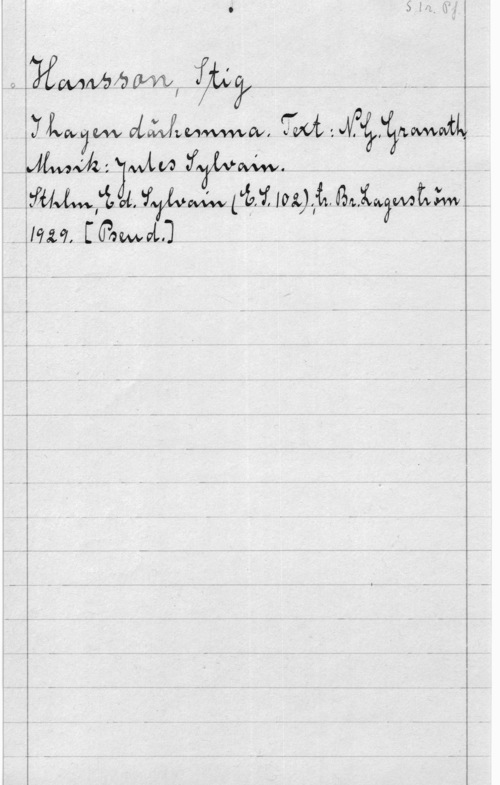 S 1 r. Pf.
Hansson, Stig
I hagen därhemma. Text: N.G. Granath
Musik: Jules Sylvain.
Sthlm, Ed. Sylvain (E.S. 102), tr. Br. Lagerström
1929. [Pseud.]